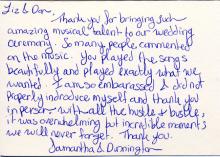 Liz & Don,
Thank you for bringing such
amazing musical talent to our wedding
ceremony. So many people commented
on the music. You played the songs
beautifully and played exactly what we
wanted. I am so embarassed I did not
properly introduce myself and thank you
in person. With all the hustle & bustle,
it was overwhelming but incredible moments
we will never forget. Thank you.
Samantha & Dunnington